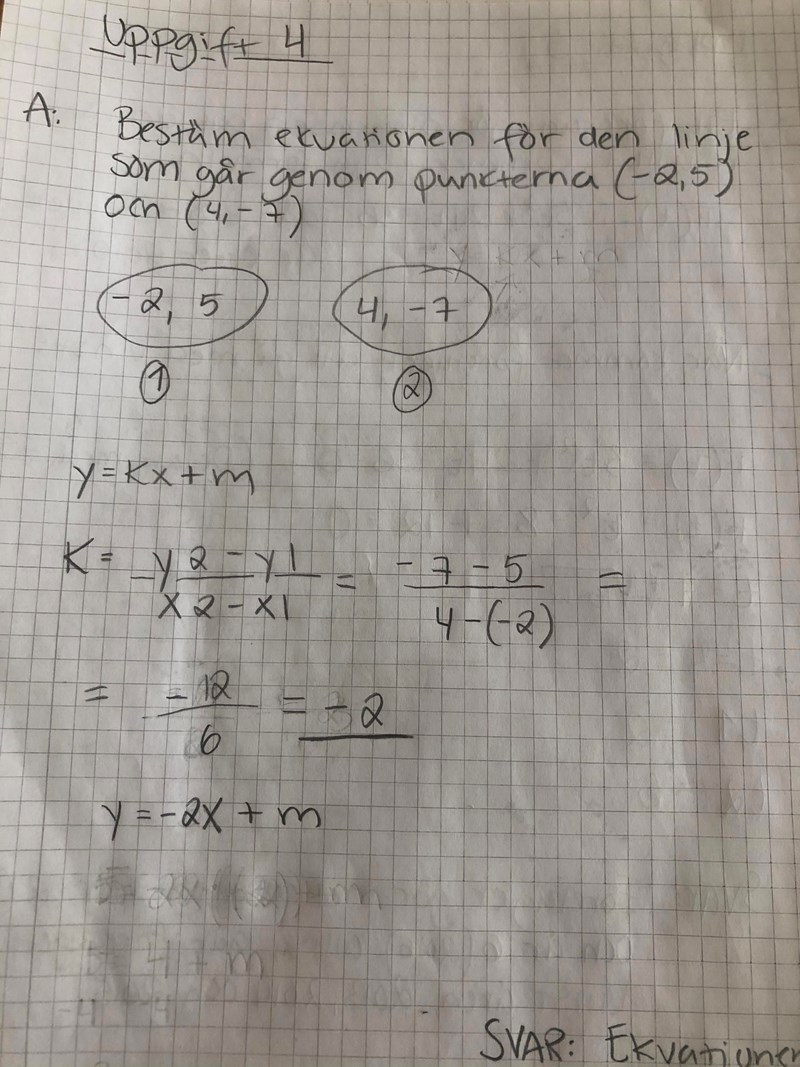 Uppgift 4
A: Bestäm ekvationen för den linje
som går genom puncterna (-2,5)
och (4,-7)
-2, 5   4, -7
1   2
y=kx+m
K= y2-y1/x2-x1 = -7-5/4-(-2) =
= -12/6 = -2
y=-2x+m
SVAR: Ekvationen